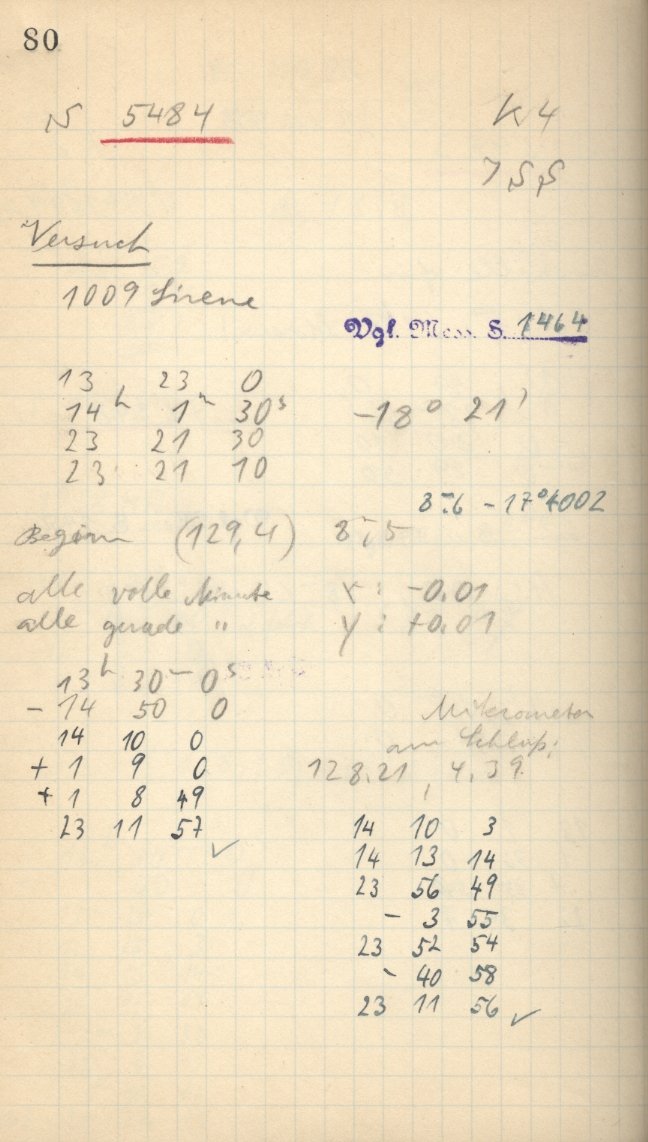 80
N 5484 K 4
Versuch
1009 Sirene
Vgl. Mess. S. 1464
13 23 0
14h 1m 30s -18° 21'
23 21 30
23 21 10
8m.6 - 17°4002
Beginn (129,4) 8m,5
alle volle Minute x: -0.01
alle gerade " y: +0.01
13h 30m 0s
- 14 50 0
Mikrometer
14 10 0
am Schluß:
+ 1 9 0
128.21, 4.39
+ 1 8 49
23 11 57 ✓
14 10 3
14 13 14
23 56 49
- 3 55
23 52 54
- 40 58
23 11 56 ✓